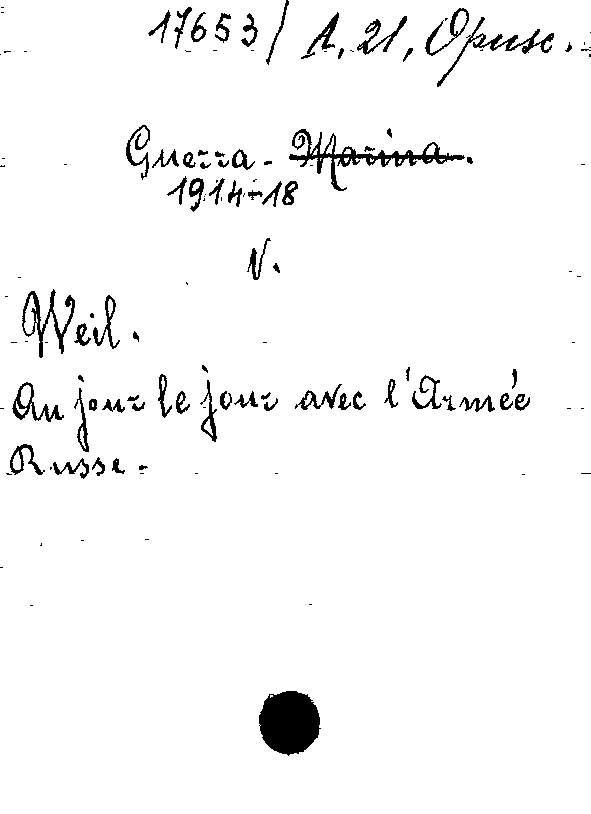 17653/ A, 21, Opusc.
Guerra - Marina.
1914-18
V.
Weil.
Au jour le jour avec l'Armée
Russe.